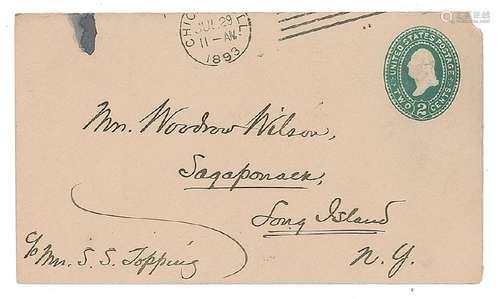 CHICAGO, ILL.
JUL 29
11-AM
1893
UNITED STATES POSTAGE
TWO 2 CENTS
Mr. Woodrow Wilson,
Sagaponack,
Long Island
N. Y.
c/o Mrs. S. S. Topping